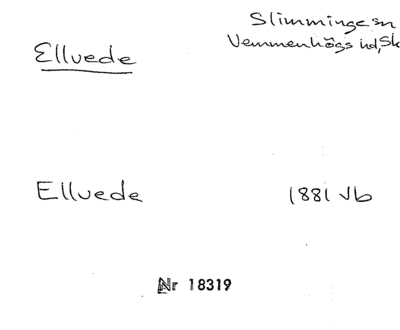 Slimminge sn
Vemmenhögs hd, Sk
Ellvede
Ellvede 1881 Jb
Nr 18319